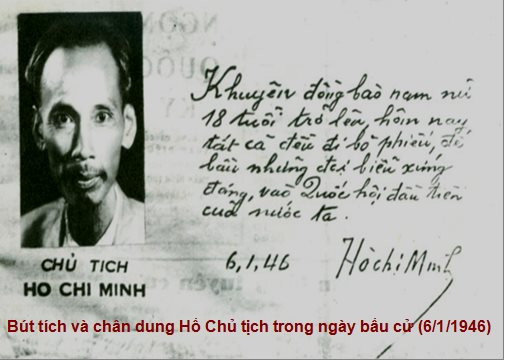 Khuyên đồng bào nam nữ
18 tuổi trở lên, hôm nay
tất cả đều đi bỏ phiếu, để
bầu những đại biểu xứng
đáng, vào Quốc hội đầu tiên
của nước ta.
6,1,46 Hồ Chí Minh
CHỦ TỊCH
HO CHI MINH
Bút tích và chân dung Hồ Chủ tịch trong ngày bầu cử (6/1/1946)